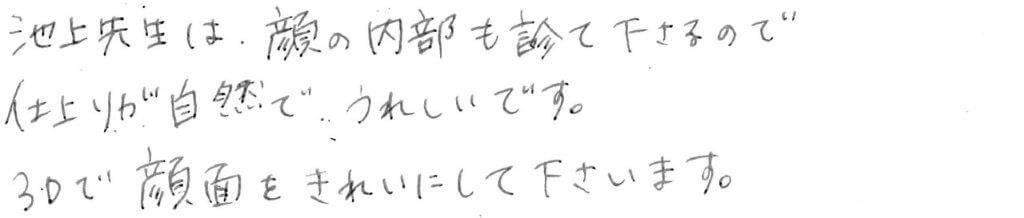 池上先生は、顔の内部も診て下さるので
仕上りが自然で、うれしいです。
3Dで顔面をきれいにして下さいます。